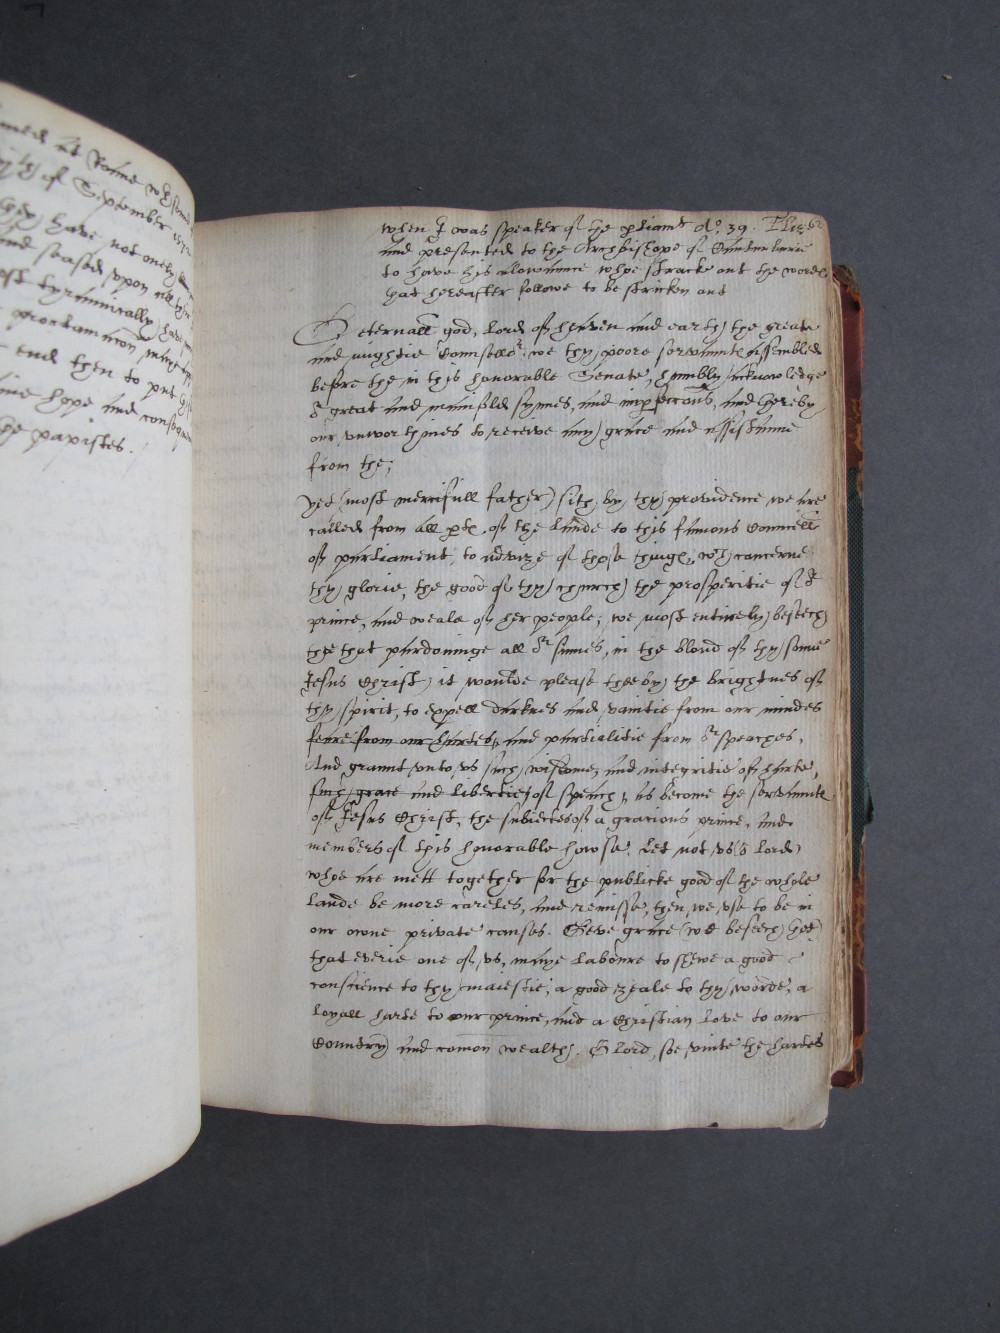 med at Rome wh
of September 1572
they have not onely
and seased upon all
most tyrannically have
proclamation
end then to put
hope and conseq
the papistes.
when I was speaker of the pliamt Ao. 39. Eliz. 62
and presented to the Archbishope of Cunterburie
to have his allowance whoe stracke out the wordes
that hereafter followe to be stricken out
O eternall god, Lord of heaven and earth, the greate
and mightie Counsellor: we thy poore servauntes assembled
before the in this honorable Senate, humbly acknowledge
or great and manifold synnes, and imperfeccons, and thereby
our unworthines to receive any grace and assistaunce
from the;
yet (most mercifull father) sith by thy providence we are
called from all ptes of the lande to this famous Counsell
of parliament, to advize of those thinges, wch concerne
thy glorie, the good of thy church, the prosperitie of or
prince, and weale of her people; we most entirely beseech
the that pardoninge all or sinnes, in the bloud of thy sonne
Jesus Christ, it woulde please thee by the brightnes of
thy spirit, to expell darknes and vanitie from our mindes
feare from our hartes, and partialitie from or speaches,
And graunt unto us such wisdome, and integritie of harte,
such grace and libertie of speach, as become the servauntes
of Jesus Christ, the subiectes of a gracious prince, and
members of this honorable howse. Let not us (o Lord)
whoe are mett together for the publicke good of the whole
lande be more careles, and remisse, then we use to be in
our owne private causes. Geve grace (we beseech thee)
that everie one of us, maye laboure to shewe a good
conscience to thy maiestie, a good zeale to thy worde, a
loyall harte to our prince, and a Christian love to our
Country and comon wealth. O Lord, soe unite the hartes